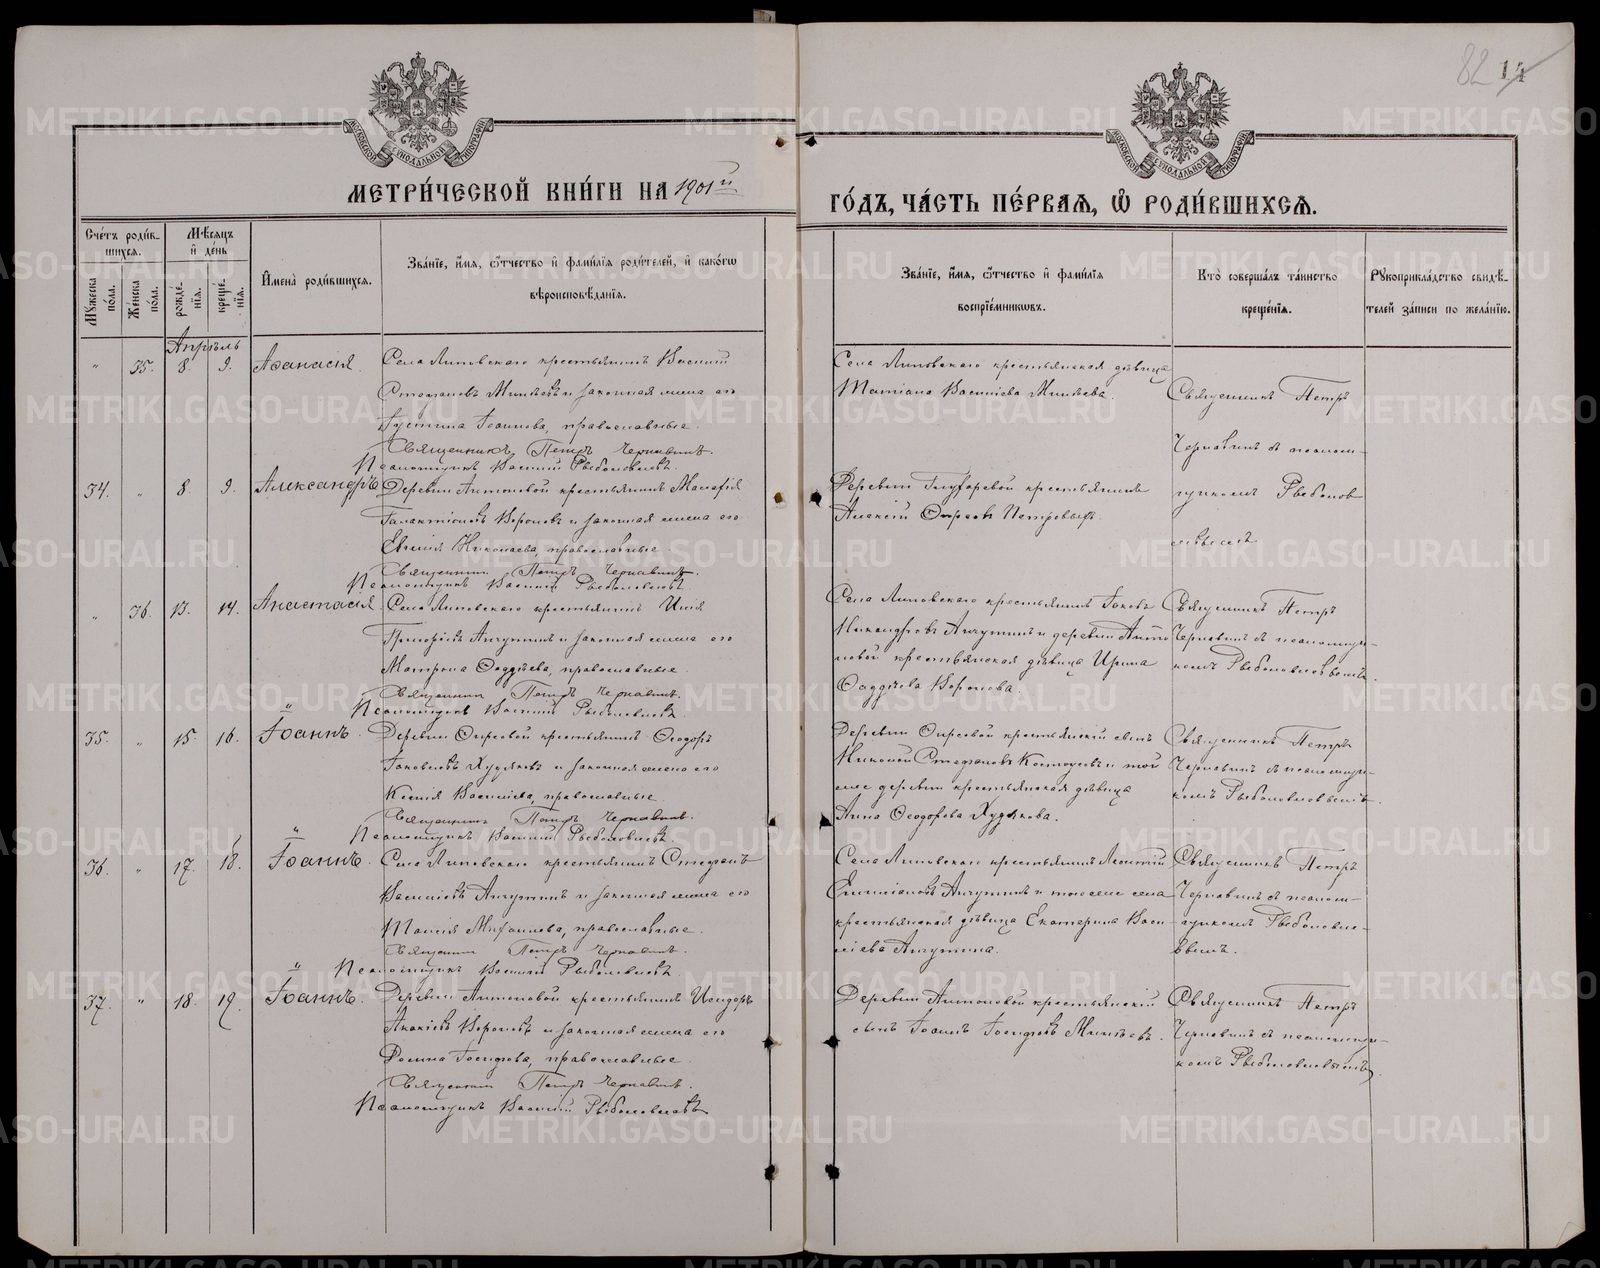 82 14
МОСКОВСКОЙ СѴНОДАЛЬНОЙ ТИПОГРАФІИ
МОСКОВСКОЙ СѴНОДАЛЬНОЙ ТИПОГРАФІИ
МЕТРИ́ЧЕСКОЙ КНИ́ГИ НА 1901й
ГО́ДЪ, ЧА́СТЬ ПЕ́РВАѦ, Ѡ РОДИ́ВШИХСѦ.
Сче́тъ роди́вшихся.
Мꙋжеска по́ла.
Же́нска по́ла.
Мѣ́сяцъ и де́нь
рожде́нїя.
креще́нїя.
И҆мена̀ роди́вшихся.
Зва́нїе, и҆́мя, ѻ҆́тчество и҆ фами́лїя роди́телей, и҆ како́гѡ
вѣроисповѣ́данїя.
Зва́нїе, и҆́мя, ѻ҆́тчество и҆ фами́лїя
воспрїе́мникѡвъ.
Кто̀ соверша́лъ та́инство
креще́нїя.
Рꙋкоприкла́дство свидѣ́-
телей за́писи по жела́нїю.
Апрѣль
" 35. 8. 9. Аѳанасія.
Села Липовскаго крестьянинъ Василій
Стефановъ Миняевъ и законная жена его
Іустина Іоаннова, православные.
Священникъ Петръ Чернавинъ.
Псаломщикъ Василій Рыболовлевъ.
Села Липовскаго крестьянская дѣвица
Татіана Васильева Миняева.
Священникъ Петръ
Чернавинъ съ псалом-
щикомъ Рыболов
левымъ
34. " 8. 9. Александръ
Деревни Антоновой крестьянинъ
Галактіоновъ Вороновъ и законная жена его
Евгенія Николаева, православные.
Священникъ Петръ Чернавинъ.
Псаломщикъ Василій Рыболовлевъ
Деревни крестьянинъ
Алексій Петровыхъ.
" 36. 13. 14. Анастасія.
Села Липовскаго крестьянинъ Илія
Григорьевъ Ачутинъ и законная жена его
Матрона Ѳаддѣева, православные.
Священникъ Петръ Чернавинъ.
Псаломщикъ Василій Рыболовлевъ.
Села Липовскаго крестьянинъ Іаковъ
Никандровъ Ачутинъ и деревни Анто
новой крестьянская дѣвица Ирина
Ѳаддѣева Воронова.
Священникъ Петръ
Чернавинъ съ псаломщи-
комъ Рыболовлевымъ.
35. " 15. 16. Іоаннъ.
Деревни Ѳирсовой крестьянинъ Ѳеодоръ
Іаковлевъ Худяковъ и законная жена его
Ксенія Васильева, православные
Священникъ Петръ Чернавинъ.
Псаломщикъ Василій Рыболовлевъ
Деревни Ѳирсовой крестьянскій сынъ
Стефановъ и той
же деревни крестьянская дѣвица
Анна Ѳеодорова Худякова.
Священникъ Петръ
Чернавинъ съ псаломщи-
комъ Рыболовлевымъ.
36. " 17. 18. Іоаннъ.
Села Липовскаго крестьянинъ Стефанъ
Васильевъ Ачутинъ и законная жена его
Таисія православные.
Священникъ Петръ Чернавинъ.
Псаломщикъ Василій Рыболовлевъ.
Села Липовскаго крестьянинъ Леонтій
Ачутинъ и того же села
крестьянская дѣвица Екатерина Васи-
льева Ачутина.
Священникъ Петръ
Чернавинъ съ псалом-
щикомъ Рыболовле-
вымъ.
37. " 18. 19. Іоаннъ.
Деревни Антоновой крестьянинъ Исидоръ
Акакіевъ Вороновъ и законная жена его
Фотина Іосифова, православные.
Священникъ Петръ Чернавинъ.
Псаломщикъ Василій Рыболовлевъ
Деревни Антоновой крестьянскій
сынъ Іоаннъ Іосифовъ Миняевъ.
Священникъ Петръ
Чернавинъ съ псаломщи-
комъ Рыболовлевымъ.
METRIKI.GASO-URAL.RU